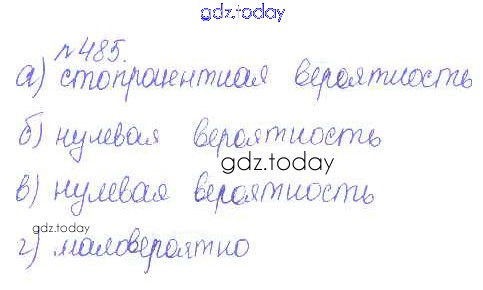 gdz.today
№485.
а) стопроцентная вероятность
б) нулевая вероятность
gdz.today
в) нулевая вероятность
gdz.today
г) маловероятно